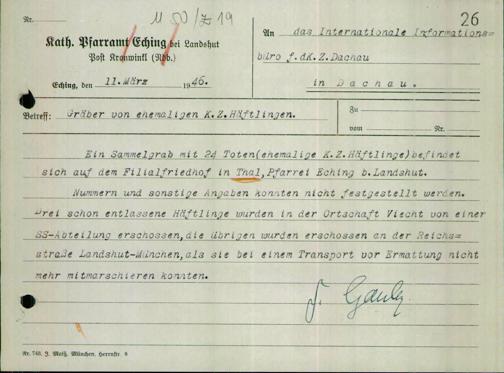 Nr.
11 50/Z 19
26
Kath. Pfarramt Eching bei Landshut
Post Kronwinkl (Nbb.)
Eching, den 11.März 1946.
An das Internationale Informations=
büro f.dK.Z.Dachau
in Dachau.
Betreff: Gräber von ehemaligen K.Z.Häftlingen.
Zu
vom Nr.
Ein Sammelgrab mit 24 Toten(ehemalige K.Z.Häftlinge)befindet
sich auf dem Filialfriedhof in Thal,Pfarrei Eching b.Landshut.
Nummern und sonstige Angaben konnten nicht festgestellt werden.
Drei schon entlassene Häftlinge wurden in der Ortschaft Viecht von einer
SS-Abteilung erschossen,die übrigen wurden erschossen an der Reichs=
straße Landshut-München,als sie bei einem Transport vor Ermattung nicht
mehr mitmarschieren konnten.
Nr. 748. J. Math. München. Herrnstr. 6